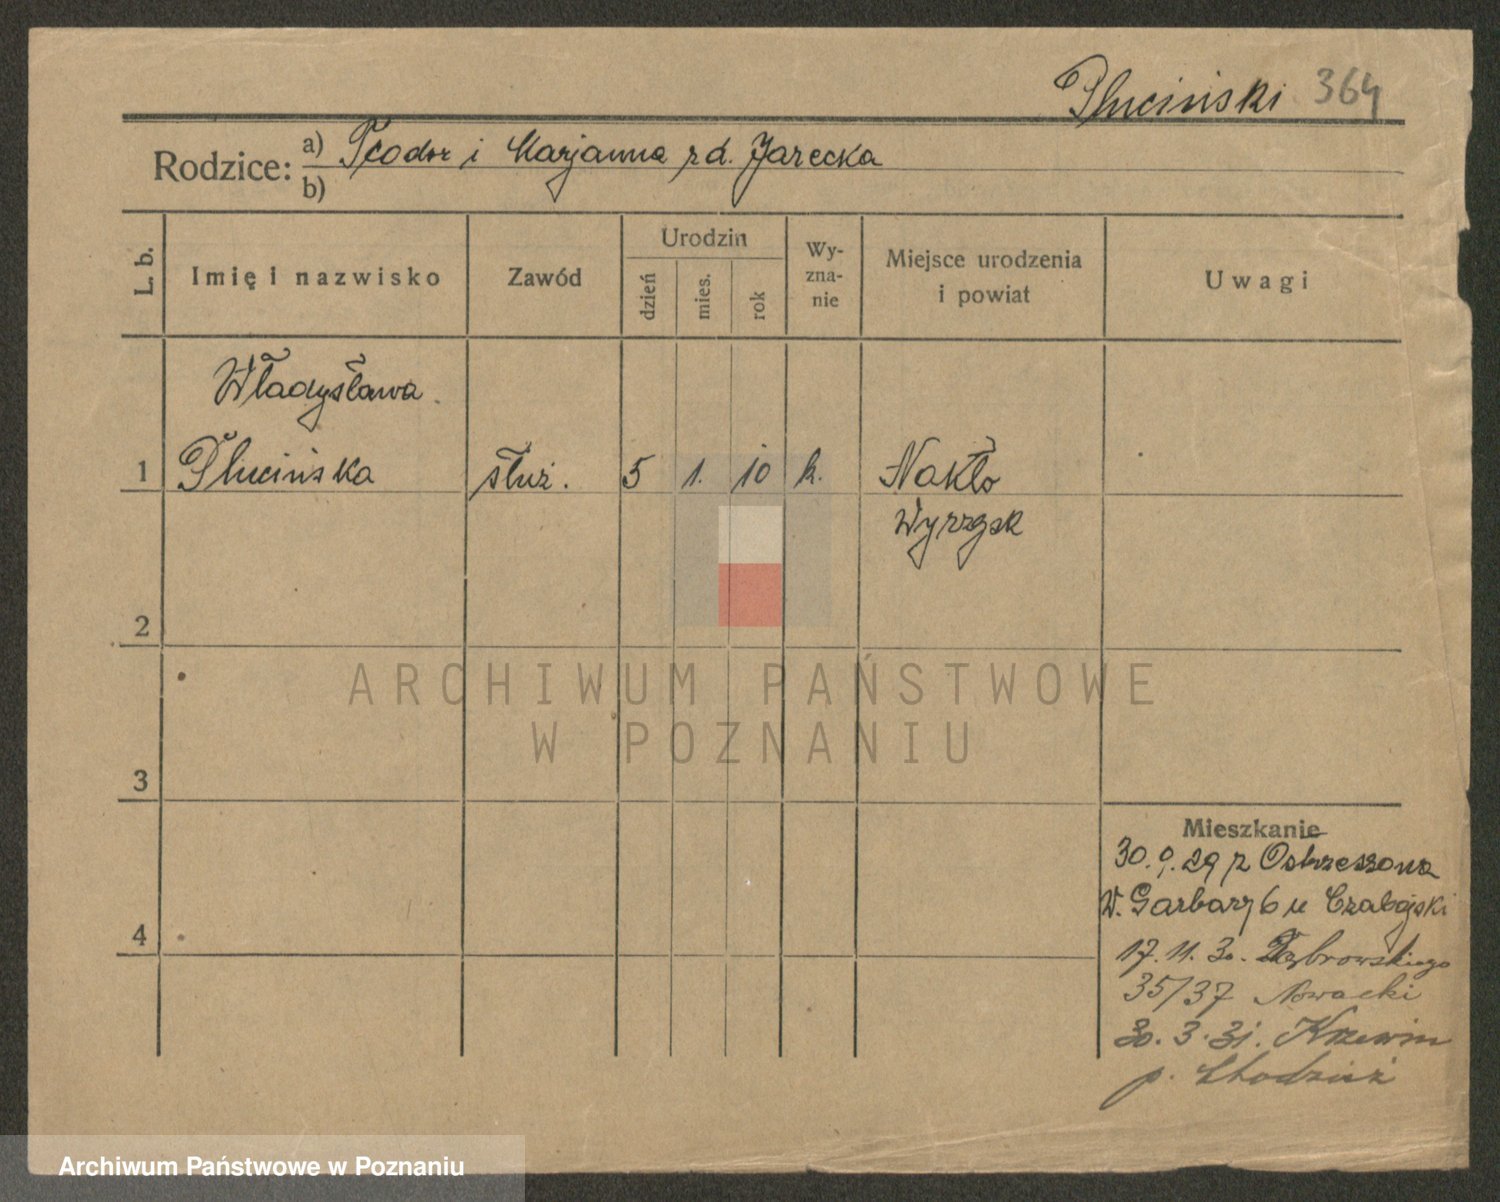 Pluciński 364
Rodzice: a) Teodor i Marjanna rd. Jarecka
b)
L. b. Imię i nazwisko Zawód Urodzin dzień mies. rok Wy-zna-nie Miejsce urodzenia i powiat Uwagi
Władysława
1 Plucińska służ. 5 1. 10 k. Nakło
Wyrzysk
2
3
4
Mieszkanie
30.9.29 z Ostrzeszowa
W. Garbary 6 u
17.11.30. Dąbrowskiego
35/37 Nowacki
30.3.31.
p. Chodzież
ARCHIWUM PAŃSTWOWE
W POZNANIU
Archiwum Państwowe w Poznaniu